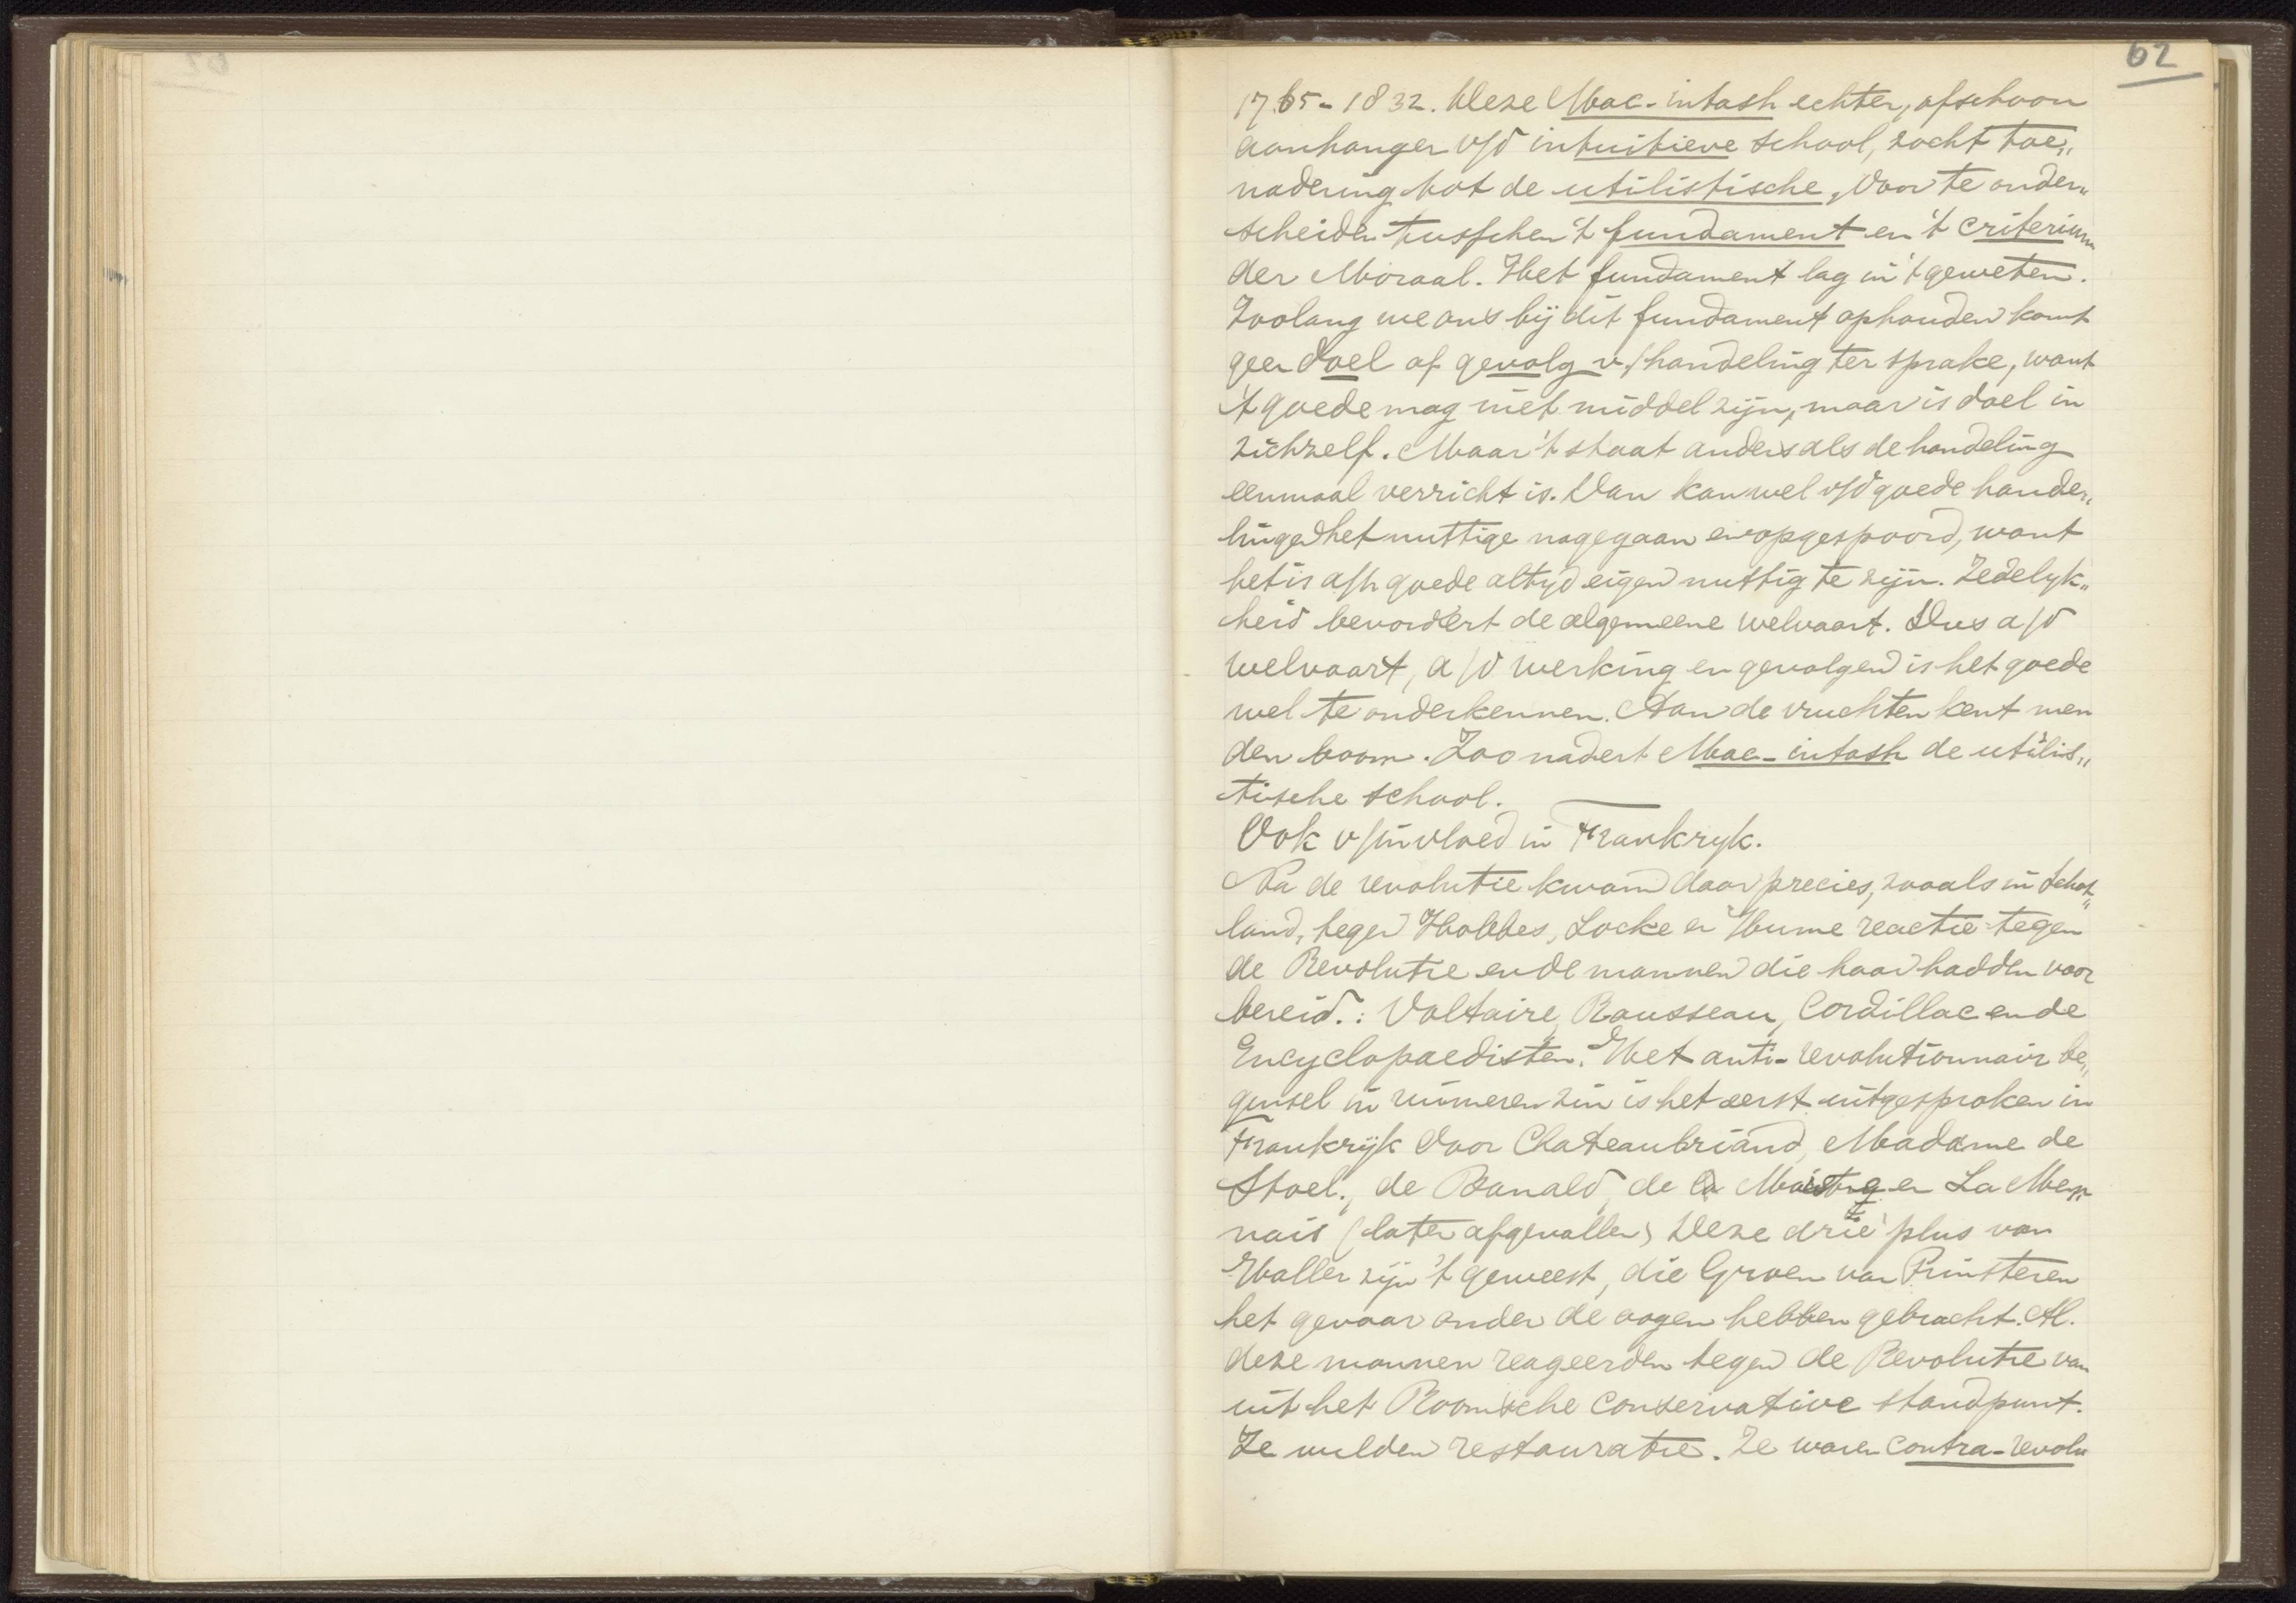 62
1765-1832. Deze Mac-intosh echter, ofschoon
aanhanger v/d intuitieve school, zocht toe„
nadering tot de utilistische, door te onder„
scheiden tusschen 't fundament en 't criterium
der Moraal. Het fundament lag in 't geweten.
Zoolang we ons bij dit fundament ophouden komt
geen doel of gevolg v/handeling ter sprake, want
't goede mag niet middel zijn, maar is doel in
zichzelf. Maar 't staat anders als de handeling
eenmaal verricht is. Dan kan wel v/d goede hande„
lingen het nuttige nagegaan en opgespoord, want
het is a/h goede altyd eigen nuttig te zijn. Zedelyk„
heid bevordert de algemeene welvaart. Dus a/d
welvaart, a/d werking en gevolgen is het goede
wel te onderkennen. Aan de vruchten kent men
den boom. Zoo nadert Mac-intosh de utilis„
tische school.
Ook v/invloed in Frankryk.
Na de revolutie kwam daar precies, zooals in Schot„
land, tegen Hobbes, Locke en Hume reactie tegen
de Revolutie en de mannen die haar hadden voor
bereid.: Voltaire, Rousseau, Cordillac en de
Encyclopaedisten. Het anti-revolutionnair be„
ginsel in ruimeren zin is het eerst uitgesproken in
Frankrijk door Chateaubriand, Madame de
Stael., de Bonald, de la Maistre en La Men„
nais (later afgevallen) Deze drie plus van
Haller zijn 't geweest, die Groen van Prinsteren
het gevaar onder de oogen hebben gebracht. Al.
deze mannen reageerden tegen de Revolutie van
uit het Roomsche conservative standpunt.
Ze wilden restauratie. Ze waren contra-revolu